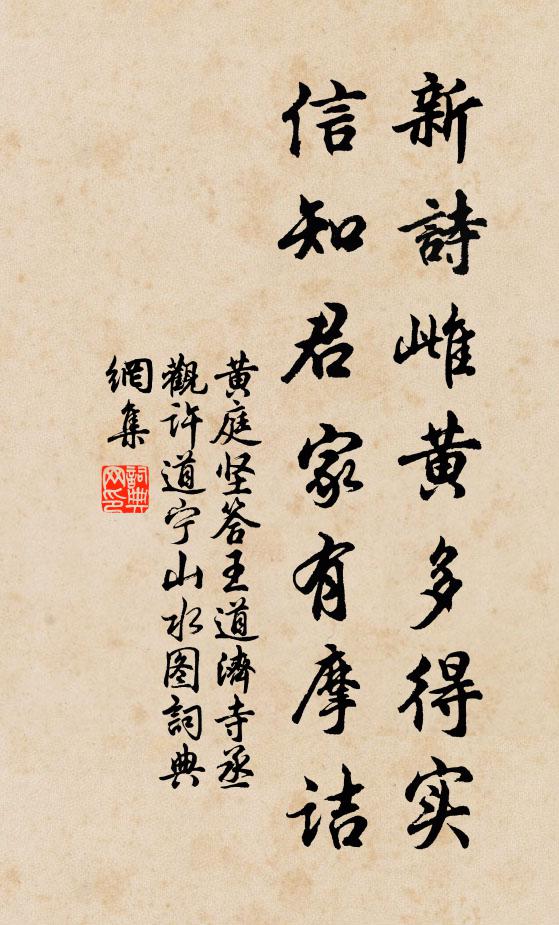 新詩雌黄多得实
信知君家有摩诘
黄庭坚答王道濟寺丞
觀许道宁山水图詞典
網集
詞典網印